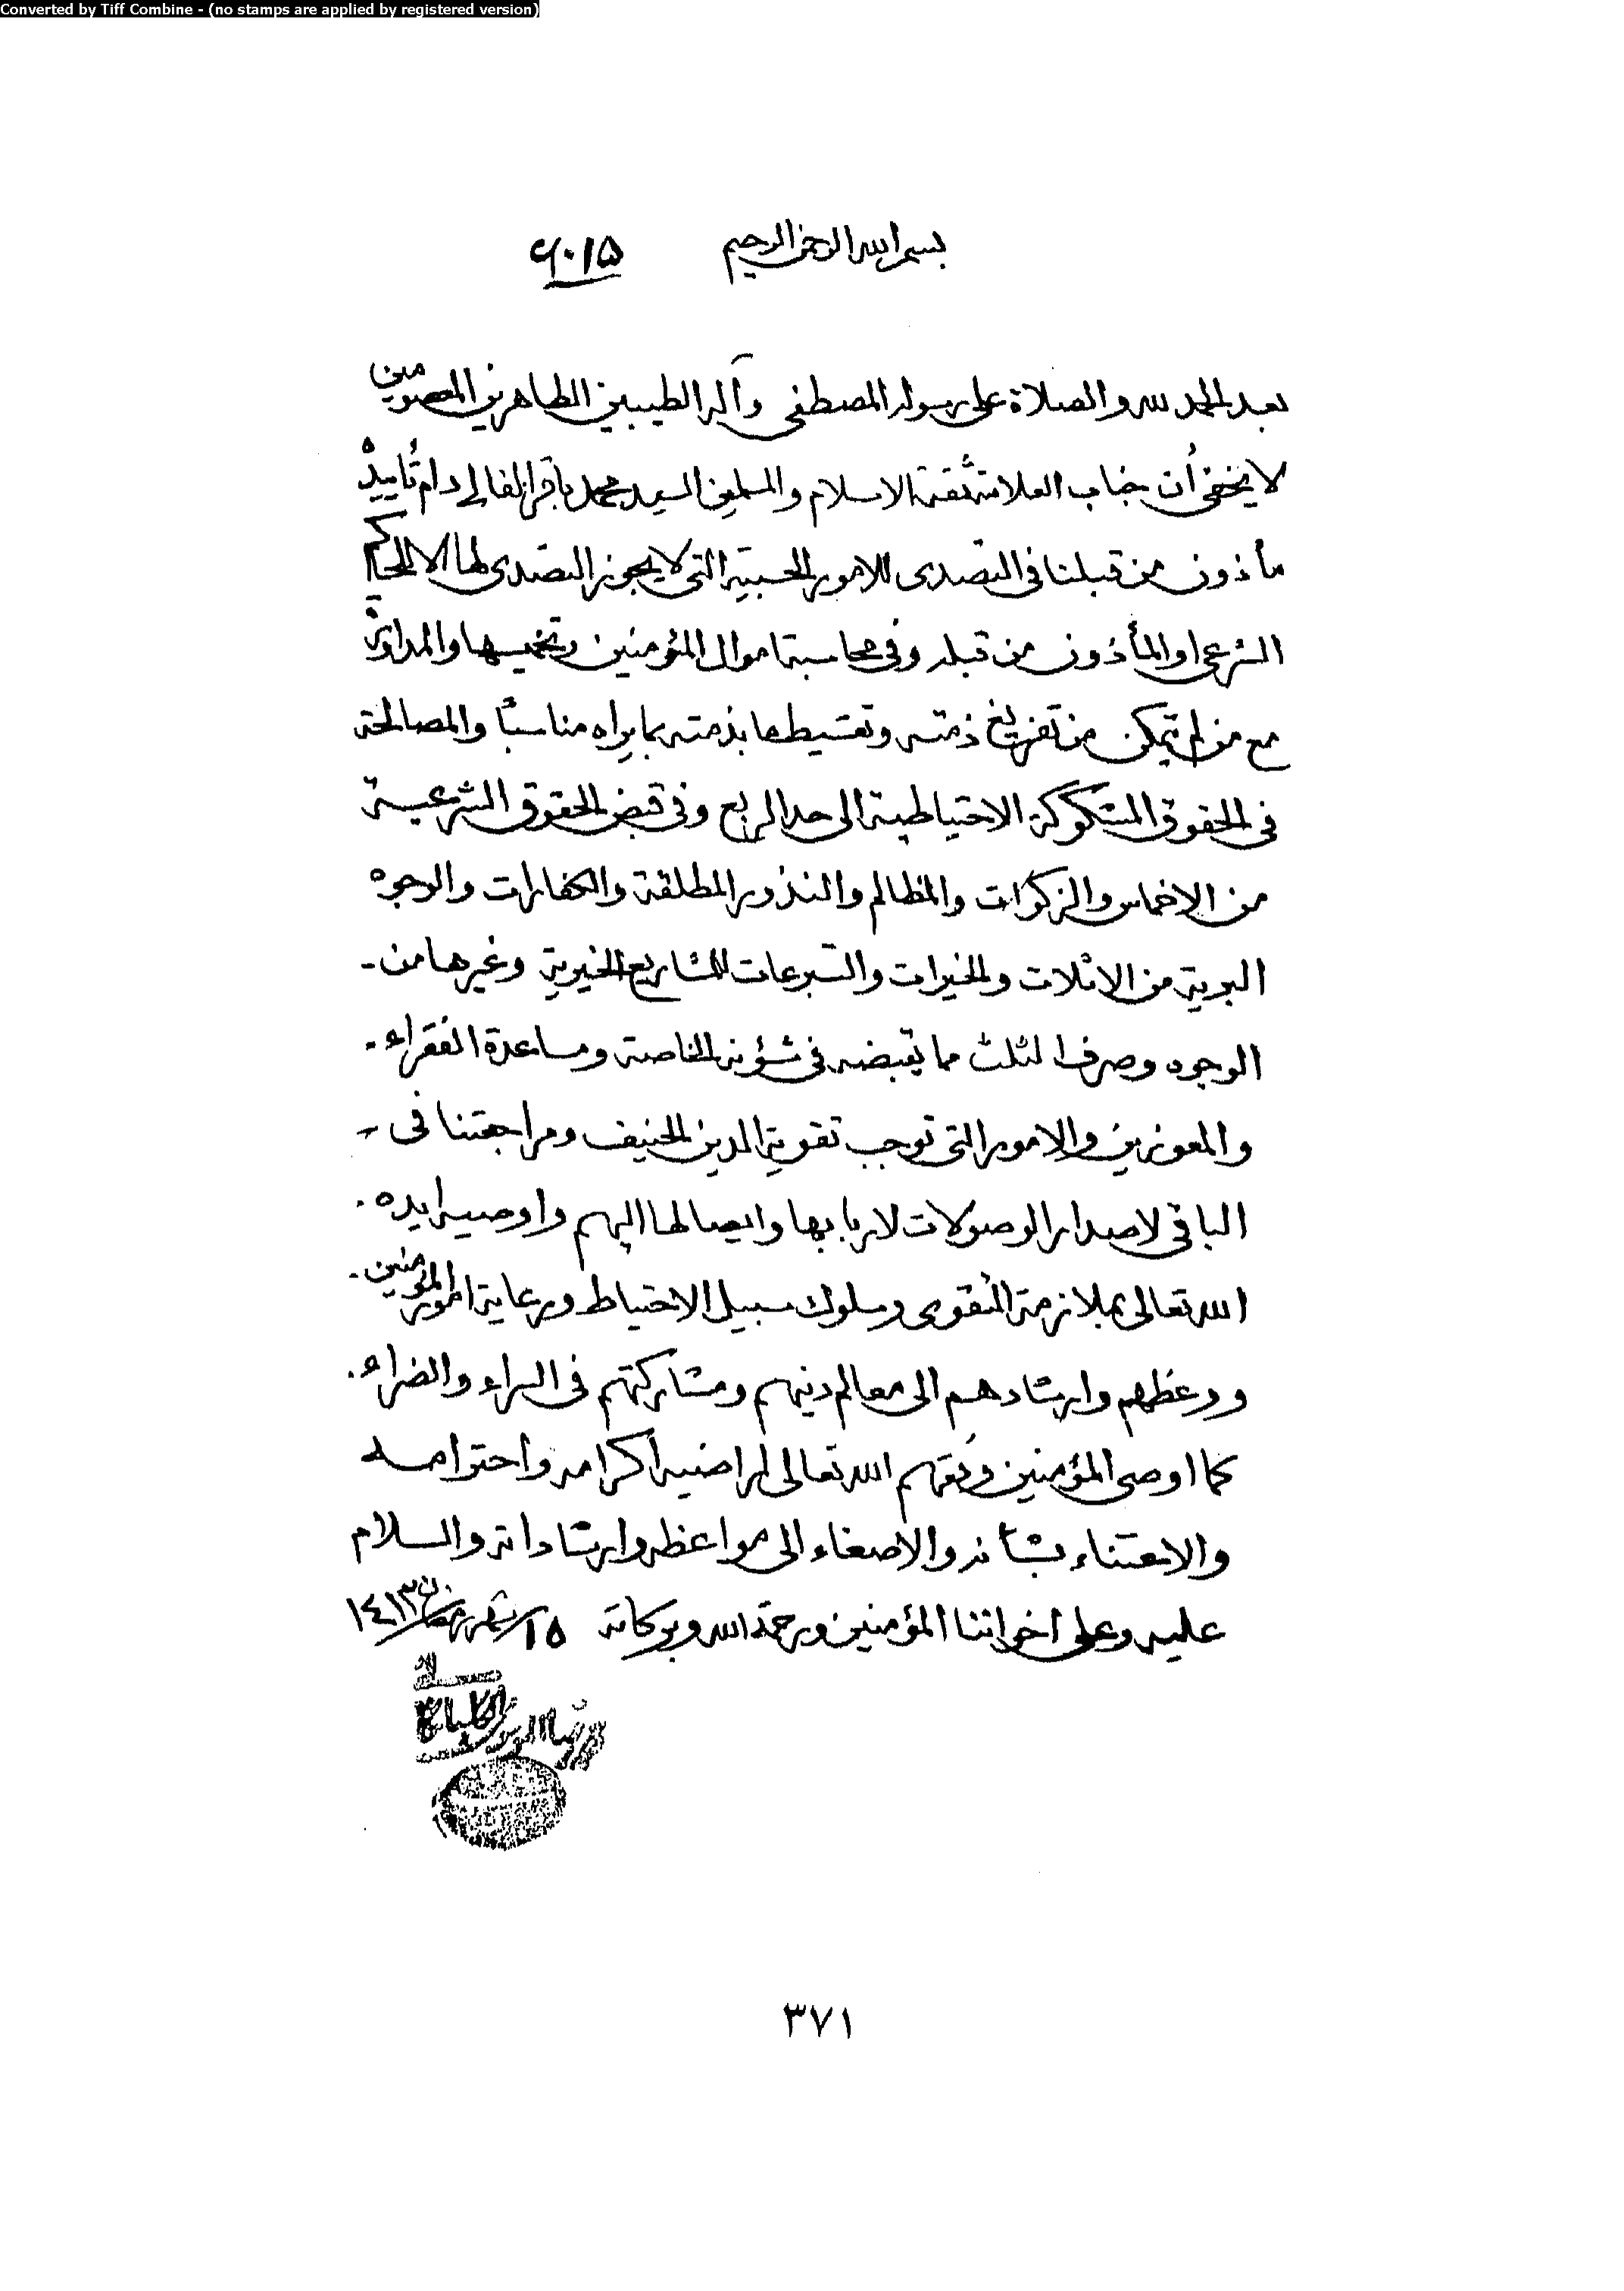 Converted by Tiff Combine - (no stamps are applied by registered version)
بسم الله الرحمن الرحيم
بعد الحمد لله والصلاة على رسوله المصطفى وآله الطيبين الطاهرين المعصومين
لا يخفى أن جناب العلامة ثقة الاسلام والمسلمين السيد محمد باقر الفالي دام تأييده
مأذون من قبلنا في التصدي للامور الحسبية التي لا يجوز التصدي لها الا للحاكم
الشرعي او المأذون من قبله وفي محاسبة اموال المؤمنين وتخميسها والمداورة
مع من لم يتمكن من تفريغ ذمته وتقسيطها بذمته بما يراه مناسباً والمصالحة
في الحقوق المشكوكة الاحتياطية الى حد الربع وفي قبض الحقوق الشرعية
من الاخماس والزكوات والمظالم والنذور المطلقة والكفارات والوجوه
البرية من الاثلاث والخيرات والتبرعات للمشاريع الخيرية وغيرها من
الوجوه وصرف الثلث مما يقبضه في شؤونه الخاصة ومساعدة الفقراء
والمعوزين والامور التي توجب تقوية الدين الحنيف ومراجعتنا في
الباقي لاصدار الوصولات لاربابها وايصالها اليهم واوصيه ايده
الله تعالى بملازمة التقوى وسلوك سبيل الاحتياط ورعاية امور المؤمنين
ووعظهم وارشادهم الى معالم دينهم ومشاركتهم في السراء والضراء
كما اوصى المؤمنين وفقهم الله تعالى لمراضيه أكرامه واحترامه
والاعتناء بشأنه والاصغاء الى مواعظه وارشاداته والسلام
عليه وعلى اخواننا المؤمنين ورحمة الله وبركاته ١٥/شهر رمضان/١٤١٣
٣٧١